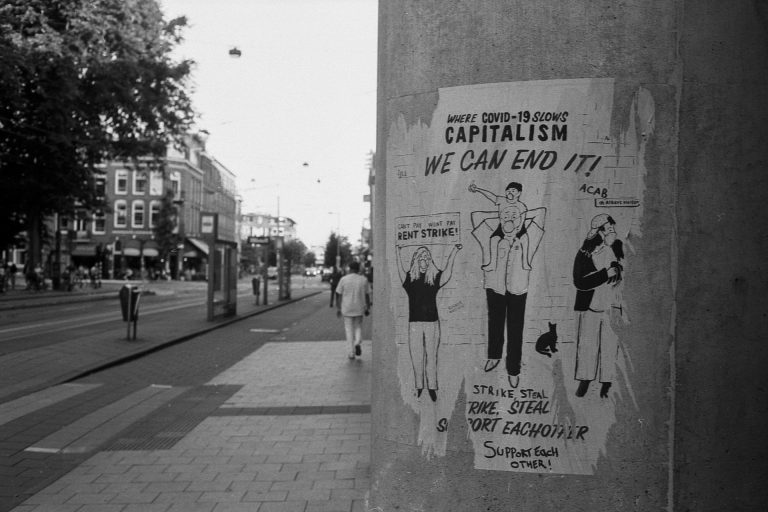 WHERE COVID-19 SLOWS
CAPITALISM
WE CAN END IT!
ACAB
CAN'T PAY WONT PAY
RENT STRIKE!
STRIKE, STEAL
TRIKE, STEAL
PORT EACHOTHER
SUPPORT EACH
OTHER!